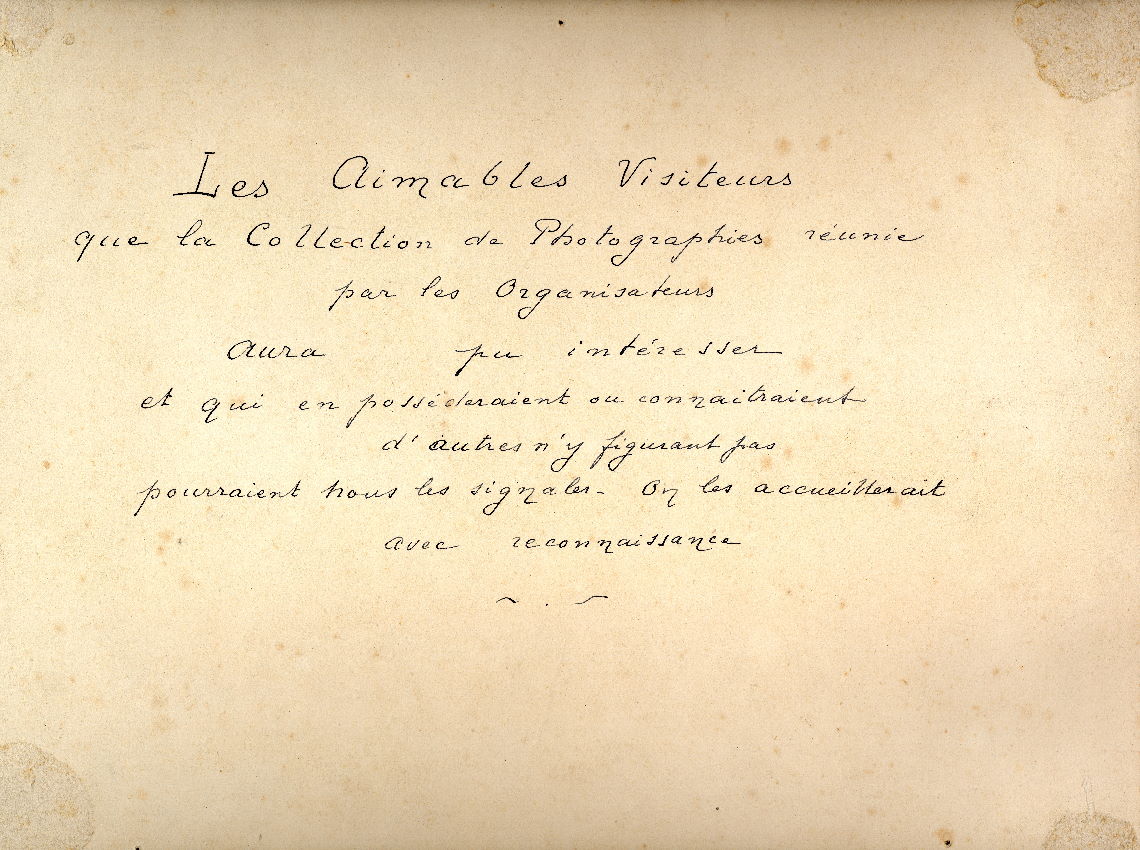 Les Aimables Visiteurs
que la Collection de Photographies réunie
par les Organisateurs
Aura pu intéresser
et qui en posséderaient ou connaitraient
d'autres n'y figurant pas
pourraient nous les signaler - On les accueillerait
avec reconnaissance